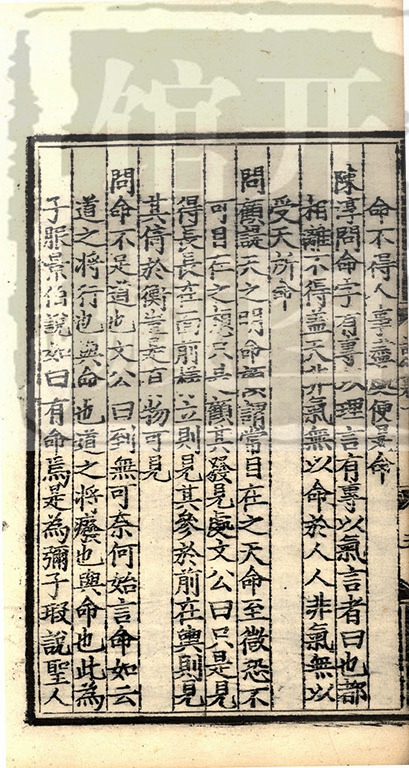 命不得人事盡處便是命
陳淳問命字有專以理言有專以氣言者曰也都
相離不得蓋天非氣無以命於人人非氣無以
受天所命
問顧諟天之明命云謂常目在之天命至微恐不
可目在之想只是顧其發見處文公曰只是見
得長長在面前模㨾立則見其參於前在輿則見
其倚於衡豈是有物可見
問命不足道也文公曰到無可奈何始言命如云
道之將行也與命也道之將廢也與命也此為
子服景伯說如曰有命焉是為彌子瑕說聖人